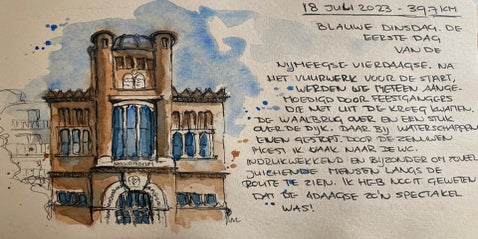 18 JULI 2023 - 39,7 KM
BLAUWE DINSDAG. DE
EERSTE DAG
VAN DE
NIJMEEGSE VIERDAAGSE. NA
HET VUURWERK VOOR DE START,
WERDEN WE METEEN AANGE-
MOEDIGD DOOR FEESTGANGERS
DIE NET UIT DE KROEG KWAMEN.
DE WAALBRUG OVER EN EEN STUK
OVER DE DIJK. DAAR BIJ WATERSCHAPPEN
EVEN GESTOPT. DOOR DE ZENUWEN
MOEST IK VAAK NAAR DE WC.
INDRUKWEKKEND EN BIJZONDER OM ZOVEEL
JUICHENDE MENSEN LANGS DE
ROUTE TE ZIEN. IK HEB NOOIT GEWETEN
DAT DE 4DAAGSE ZO'N SPECTAKEL
WAS!